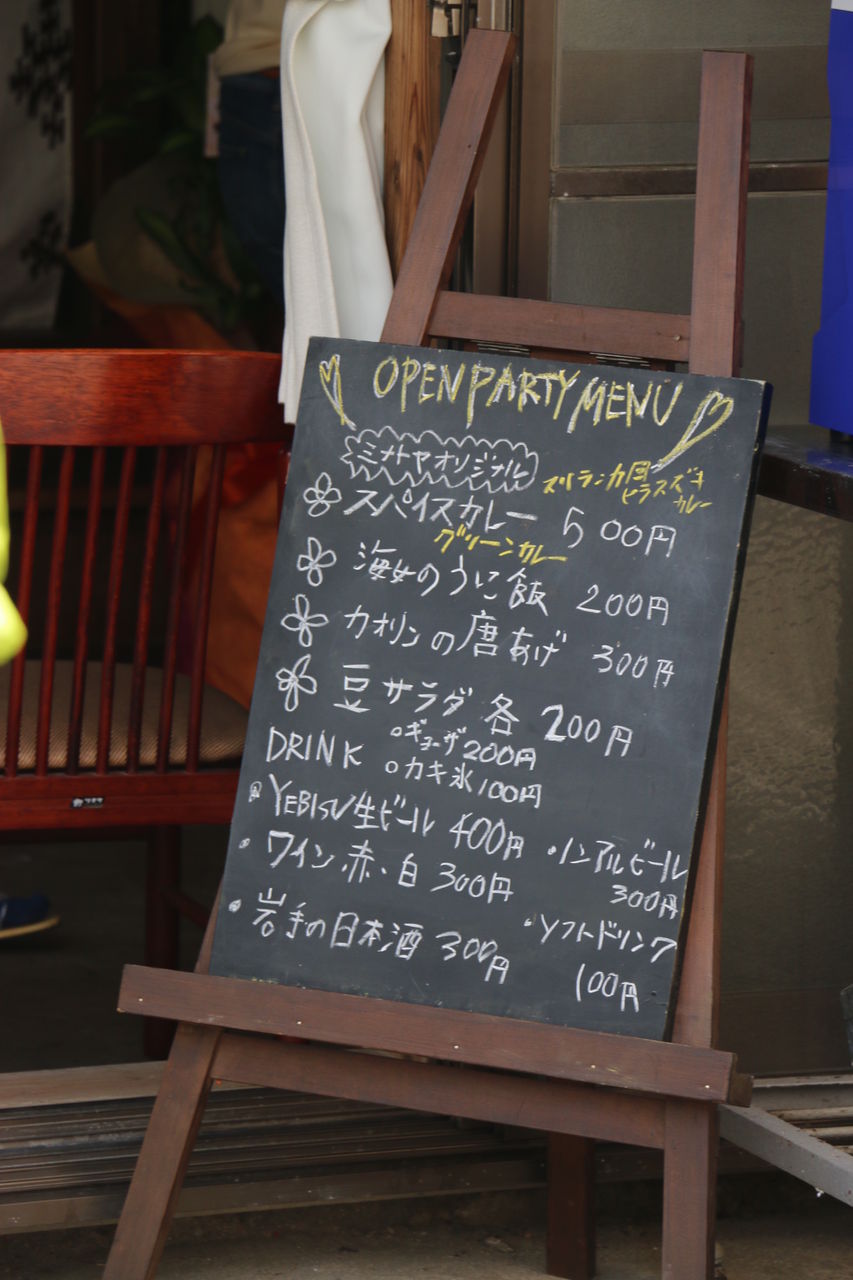 OPEN PARTY MENU
ミサヤオリジナル
スリランカ風
ヒラスズキ
カレー
スパイスカレー 500円
グリーンカレー
海女のうに飯 200円
カオリンの唐あげ 300円
豆サラダ 各 200円
DRINK
○ギョーザ 200円
○カキ氷 100円
YEBISU生ビール 400円
・ノンアルビール
300円
・ワイン・赤・白 300円
・岩手の日本酒 300円
・ソフトドリンク
100円